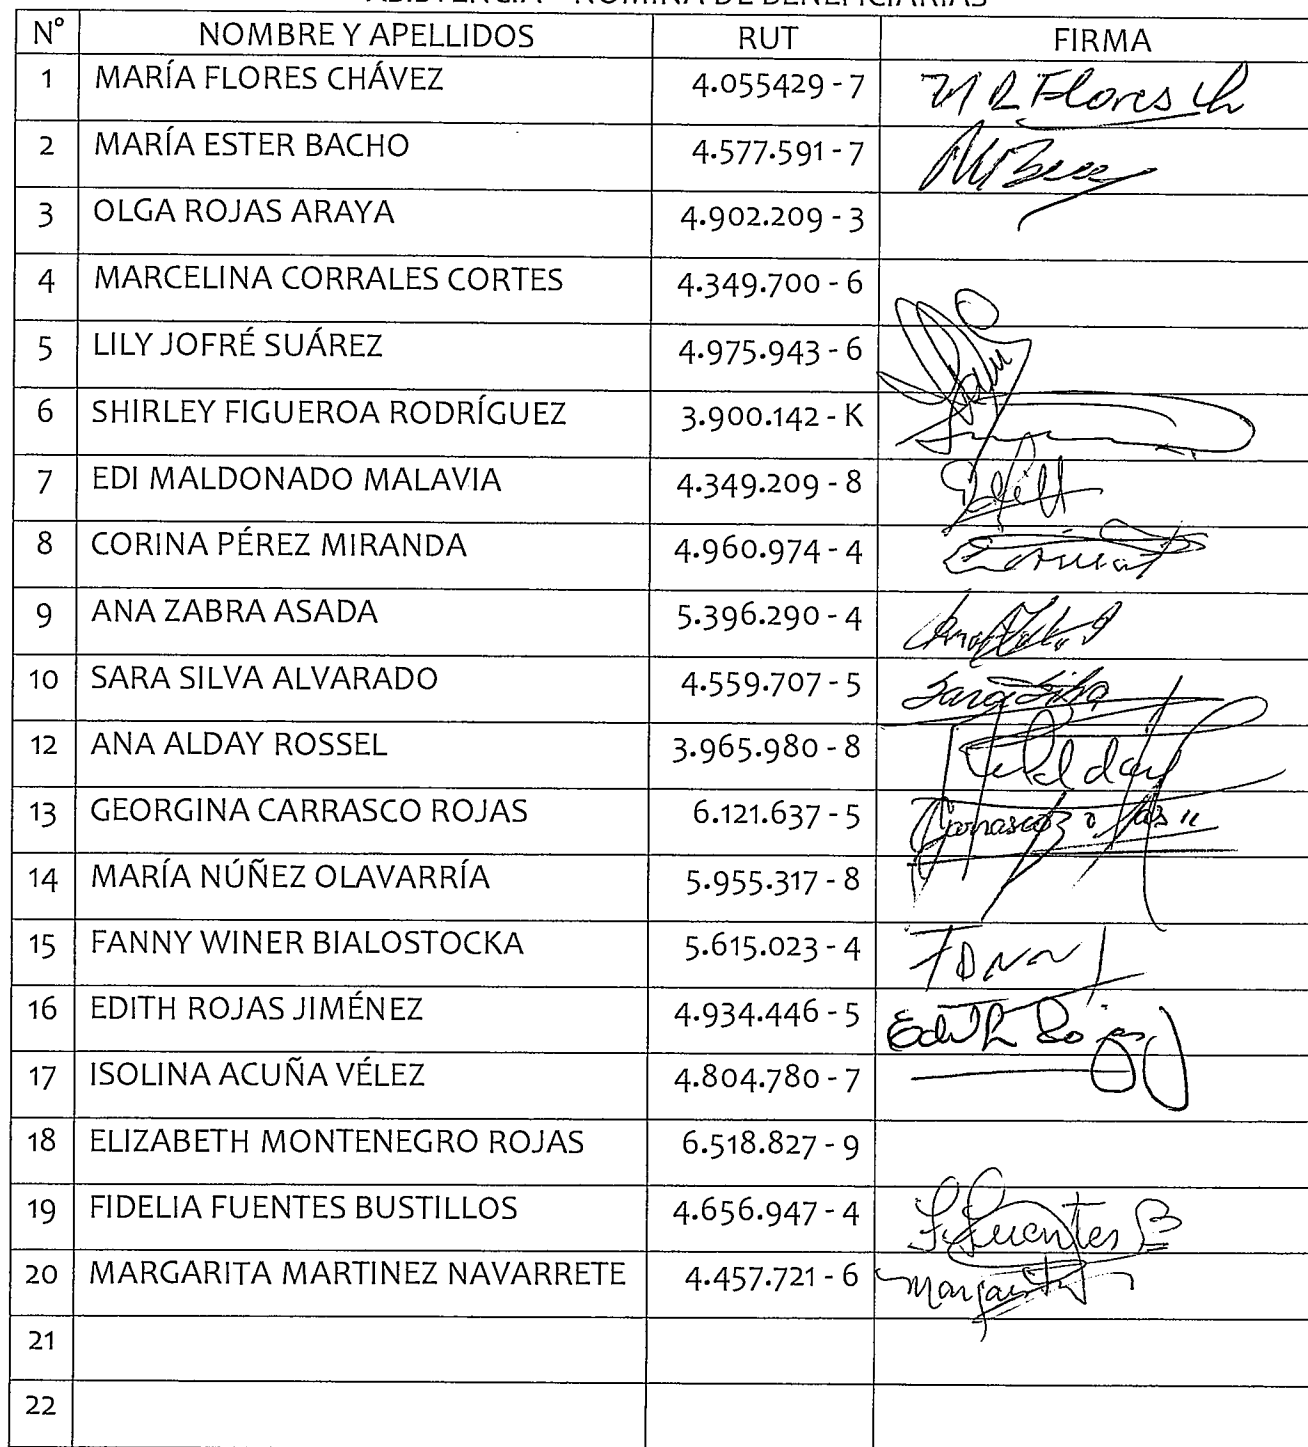 ASISTENCIA - NOMINA DE BENEFICIARIAS
N° NOMBRE Y APELLIDOS RUT FIRMA
1 MARÍA FLORES CHÁVEZ 4.055429 - 7 M R Flores Ch
2 MARÍA ESTER BACHO 4.577.591 - 7
3 OLGA ROJAS ARAYA 4.902.209 - 3
4 MARCELINA CORRALES CORTES 4.349.700 - 6
5 LILY JOFRÉ SUÁREZ 4.975.943 - 6
6 SHIRLEY FIGUEROA RODRÍGUEZ 3.900.142 - K
7 EDI MALDONADO MALAVIA 4.349.209 - 8
8 CORINA PÉREZ MIRANDA 4.960.974 - 4
9 ANA ZABRA ASADA 5.396.290 - 4
10 SARA SILVA ALVARADO 4.559.707 - 5 Sara Silva
12 ANA ALDAY ROSSEL 3.965.980 - 8
13 GEORGINA CARRASCO ROJAS 6.121.637 - 5
14 MARÍA NÚÑEZ OLAVARRÍA 5.955.317 - 8
15 FANNY WINER BIALOSTOCKA 5.615.023 - 4
16 EDITH ROJAS JIMÉNEZ 4.934.446 - 5 Edith Rojas
17 ISOLINA ACUÑA VÉLEZ 4.804.780 - 7
18 ELIZABETH MONTENEGRO ROJAS 6.518.827 - 9
19 FIDELIA FUENTES BUSTILLOS 4.656.947 - 4 F. Fuentes B
20 MARGARITA MARTINEZ NAVARRETE 4.457.721 - 6 Margarita
21
22